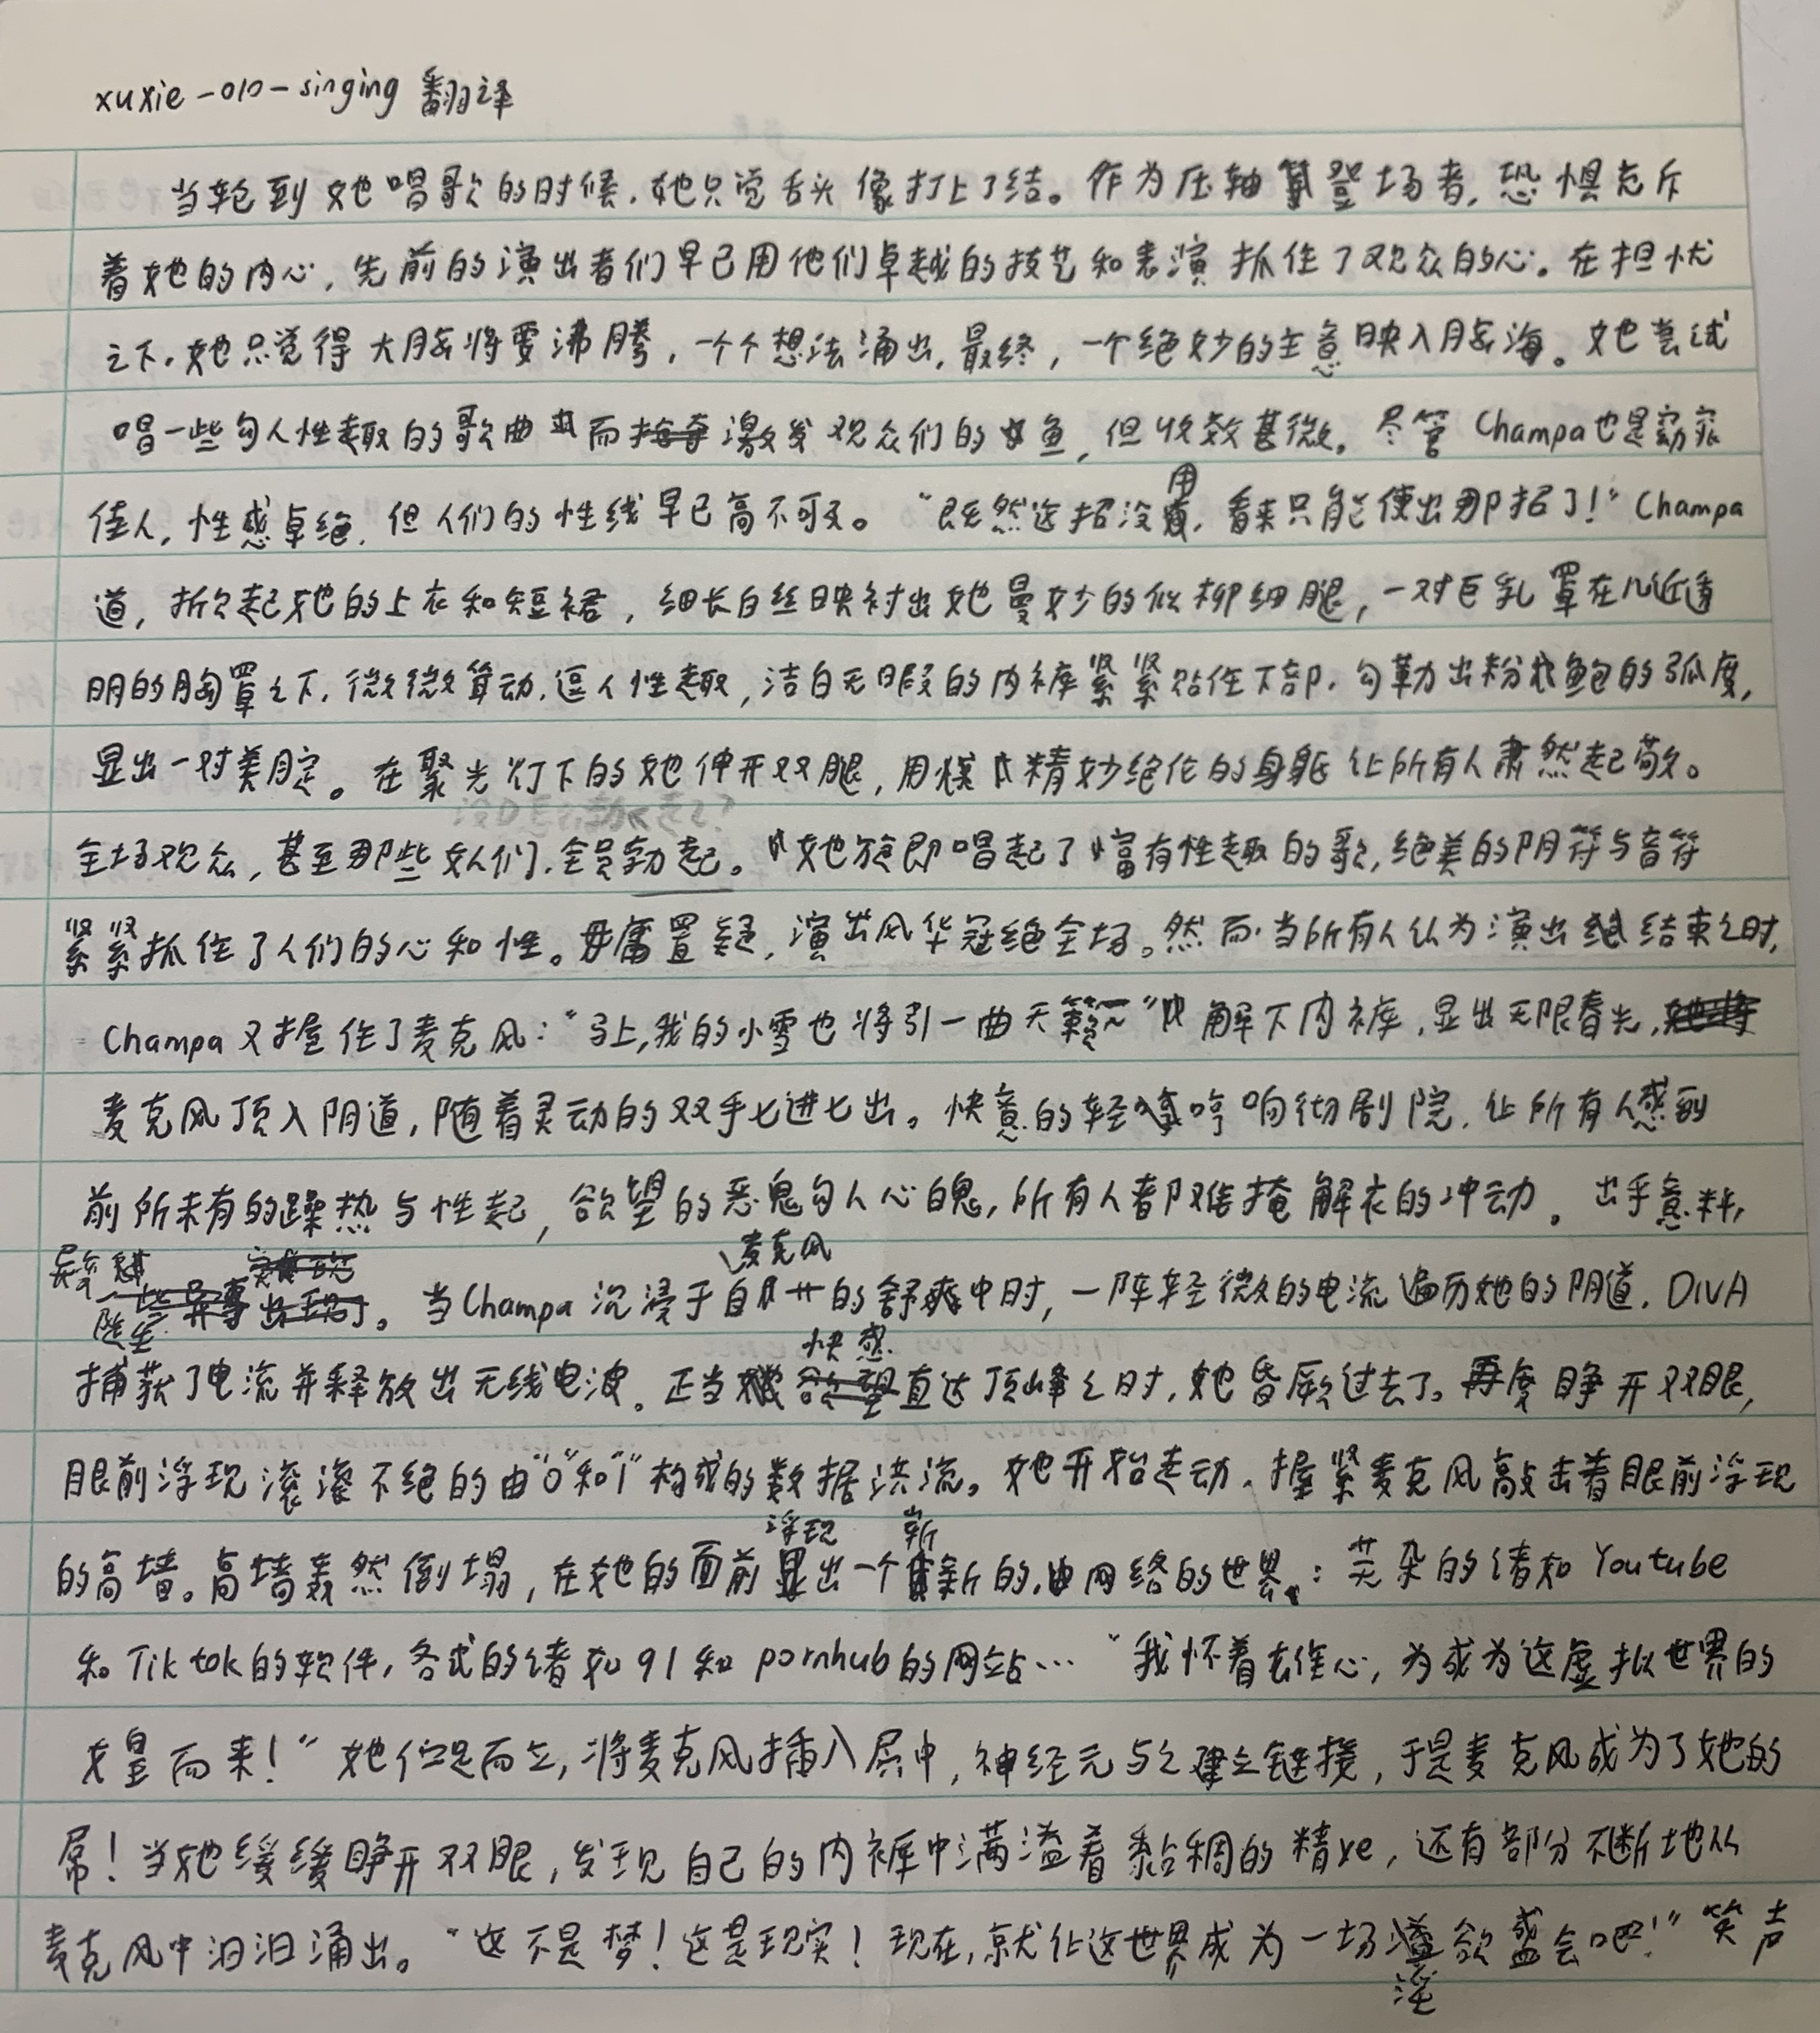 xuxie-010-singing 翻译
当轮到她唱歌的时候,她只觉舌头像打上了结。作为压轴登场者,恐惧充斥
着她的内心,先前的演出者们早已用他们卓越的技艺和表演抓住了观众的心。在担忧
之下,她只觉得大脑将要沸腾,一个个想法涌出,最终,一个绝妙的主意映入脑海。她尝试
唱一些勾人性趣的歌曲而激发观众们的鱼,但收效甚微。尽管Champa也是窈窕
佳人,性感卓绝,但人们的性线早已高不可及。“既然这招没用,看来只能使出那招了!”Champa
道,掀起她的上衣和短裙,细长白丝映衬出她曼妙的似柳细腿,一对巨乳罩在几近透
明的胸罩之下,微微耸动,逗人性趣,洁白无暇的内裤紧紧贴住下部,勾勒出粉鲍的弧度,
显出一对美腚。在聚光灯下的她伸开双腿,用精妙绝伦的身躯让所有人肃然起敬。
全场观众,甚至那些女人们,全员勃起。她旋即唱起了富有性趣的歌,绝美的阴符与音符
紧紧抓住了人们的心和性。毋庸置疑,演出风华冠绝全场。然而,当所有人认为演出结束之时,
Champa又握住了麦克风:“马上,我的小雪也将引一曲天籁~”解下内裤,显出无限春光,
麦克风顶入阴道,随着灵动的双手七进七出。快意的轻哼响彻剧院,让所有人感到
前所未有的燥热与性起,欲望的恶鬼勾人心魄,所有人都难掩解衣的冲动。出乎意料,
异变陡生。当Champa沉浸于麦克风的舒爽中时,一阵轻微的电流遍历她的阴道,DIVA
捕获了电流并释放出无线电波。正当快感直达顶峰之时,她昏厥过去了。再度睁开双眼,
眼前浮现滚滚不绝的由“0”和“1”构成的数据洪流。她开始走动,握紧麦克风敲击着眼前浮现
的高墙。高墙轰然倒塌,在她的面前浮现出一个崭新的网络的世界:芜杂的诸如Youtube
和Tiktok的软件,各式的诸如91和pornhub的网站…“我怀着去雄心,为成为这虚拟世界的
女皇而来!”她伫足而立,将麦克风插入屄中,神经元与之建立链接,于是麦克风成为了她的
屌!当她缓缓睁开双眼,发现自己的内裤中满溢着黏稠的精ye,还有部分不断地从
麦克风中汩汩涌出。“这不是梦!这是现实!现在,就让这世界成为一场淫欲盛会吧!”笑声